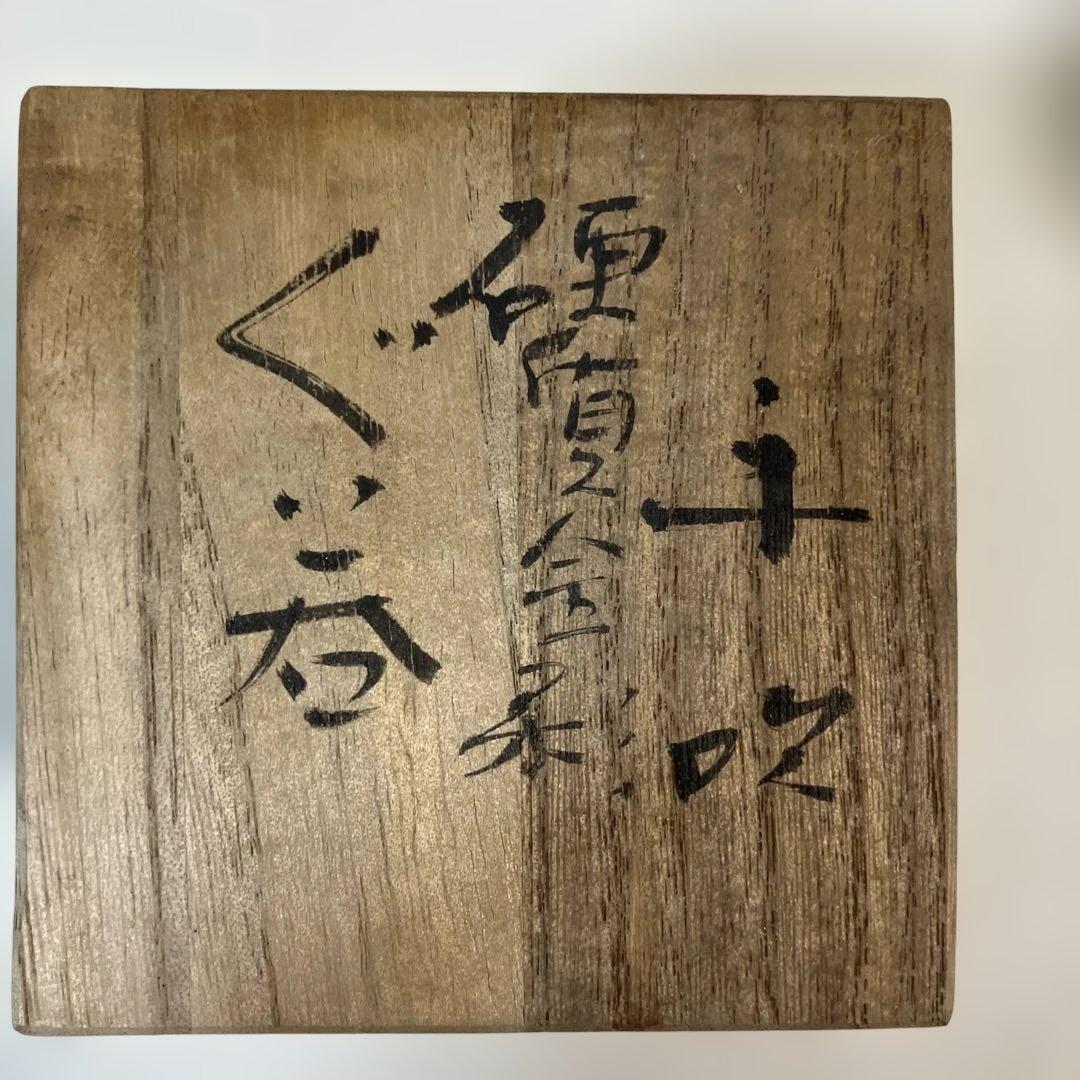 手吹
硬質金彩
ぐい呑